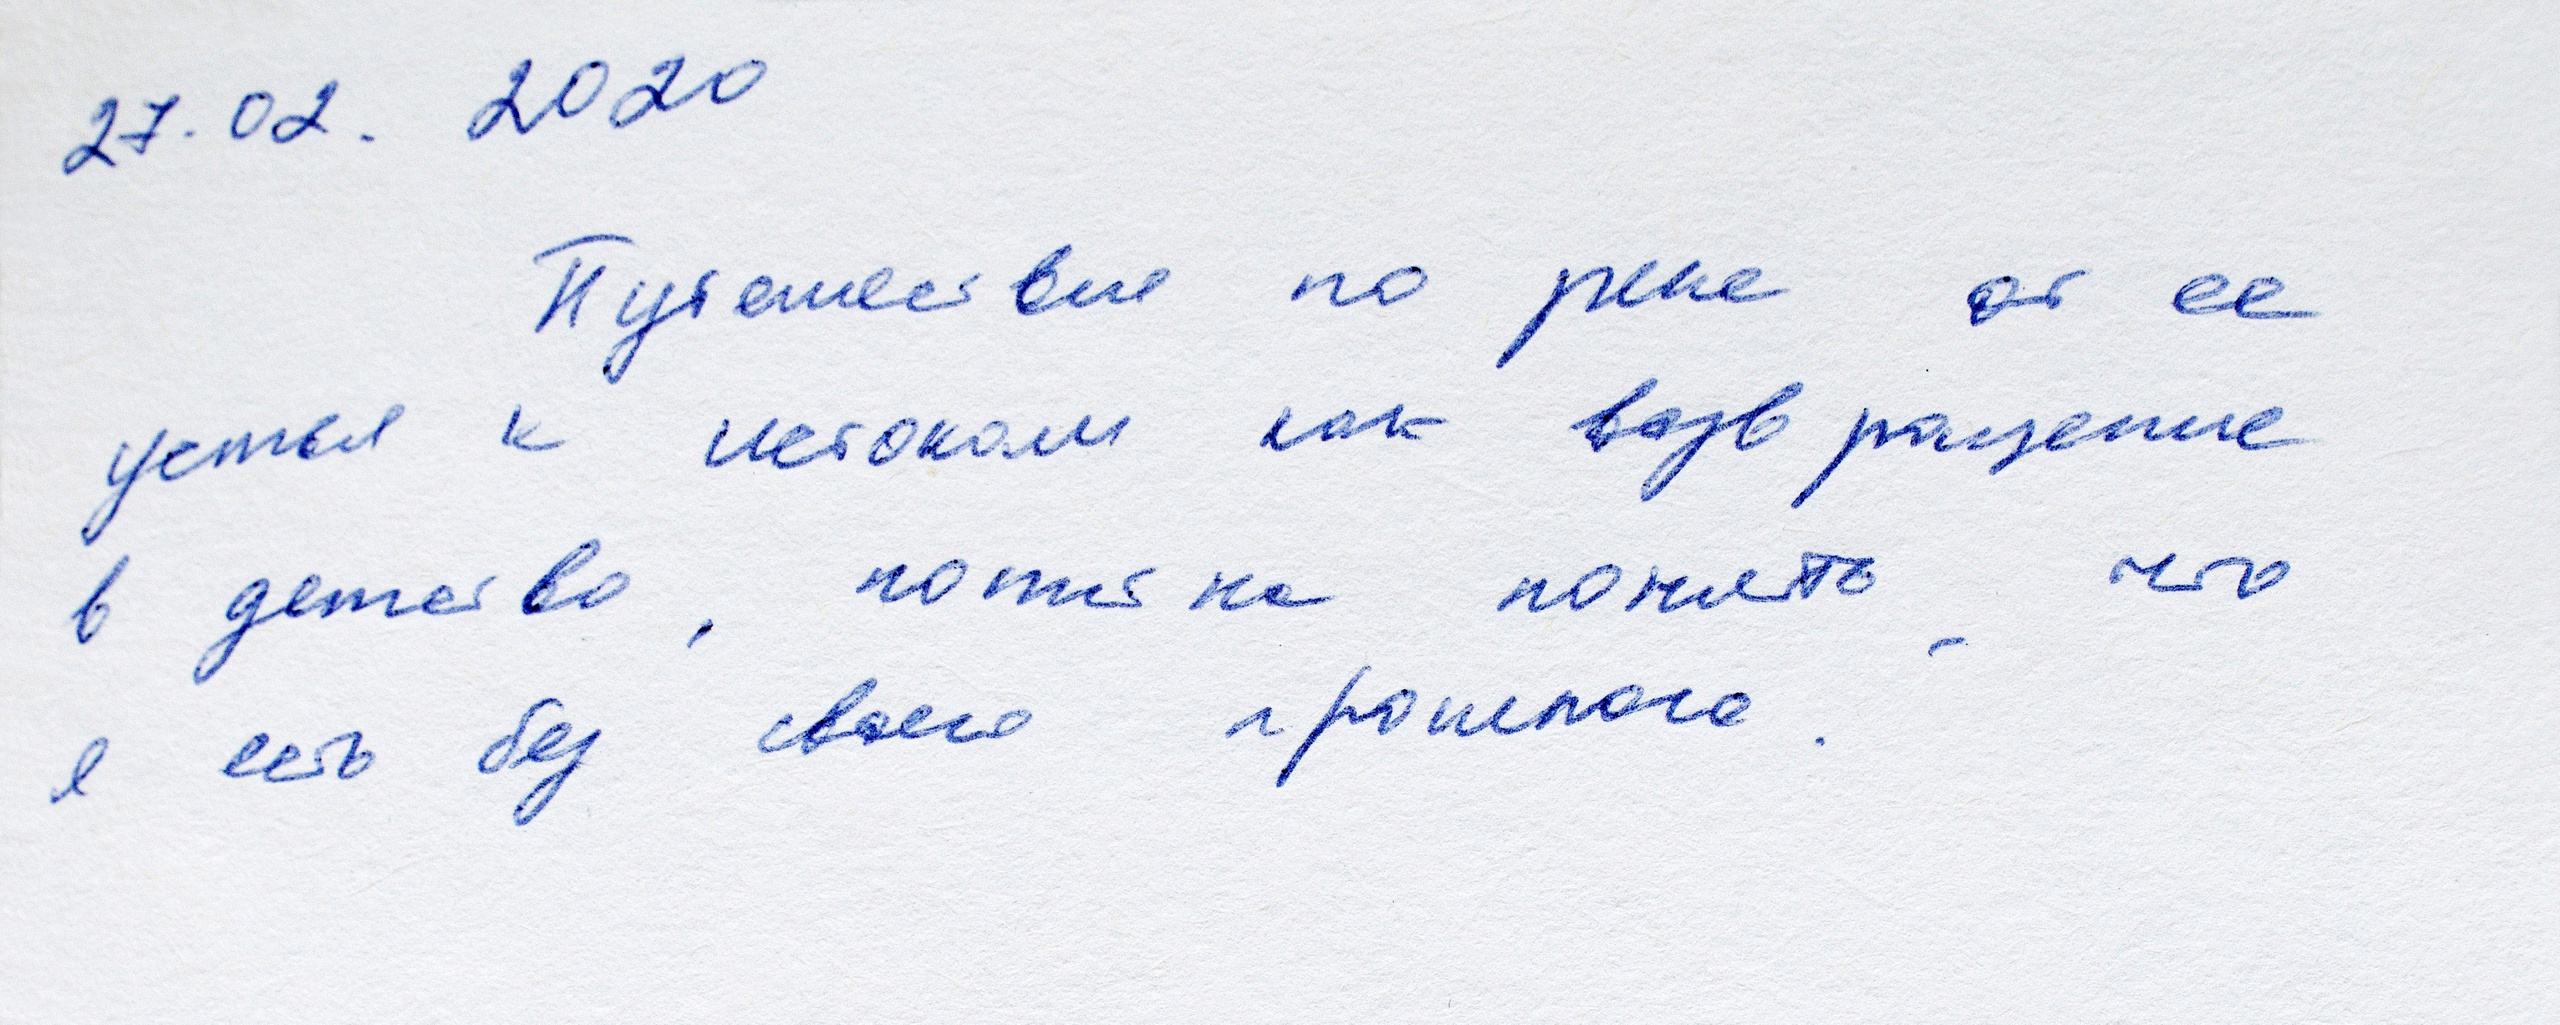 27.02.2020
Путешествие по реке от ее
устья к истокам как возвращение
в детство, попытка понять, что
я есть без своего прошлого.